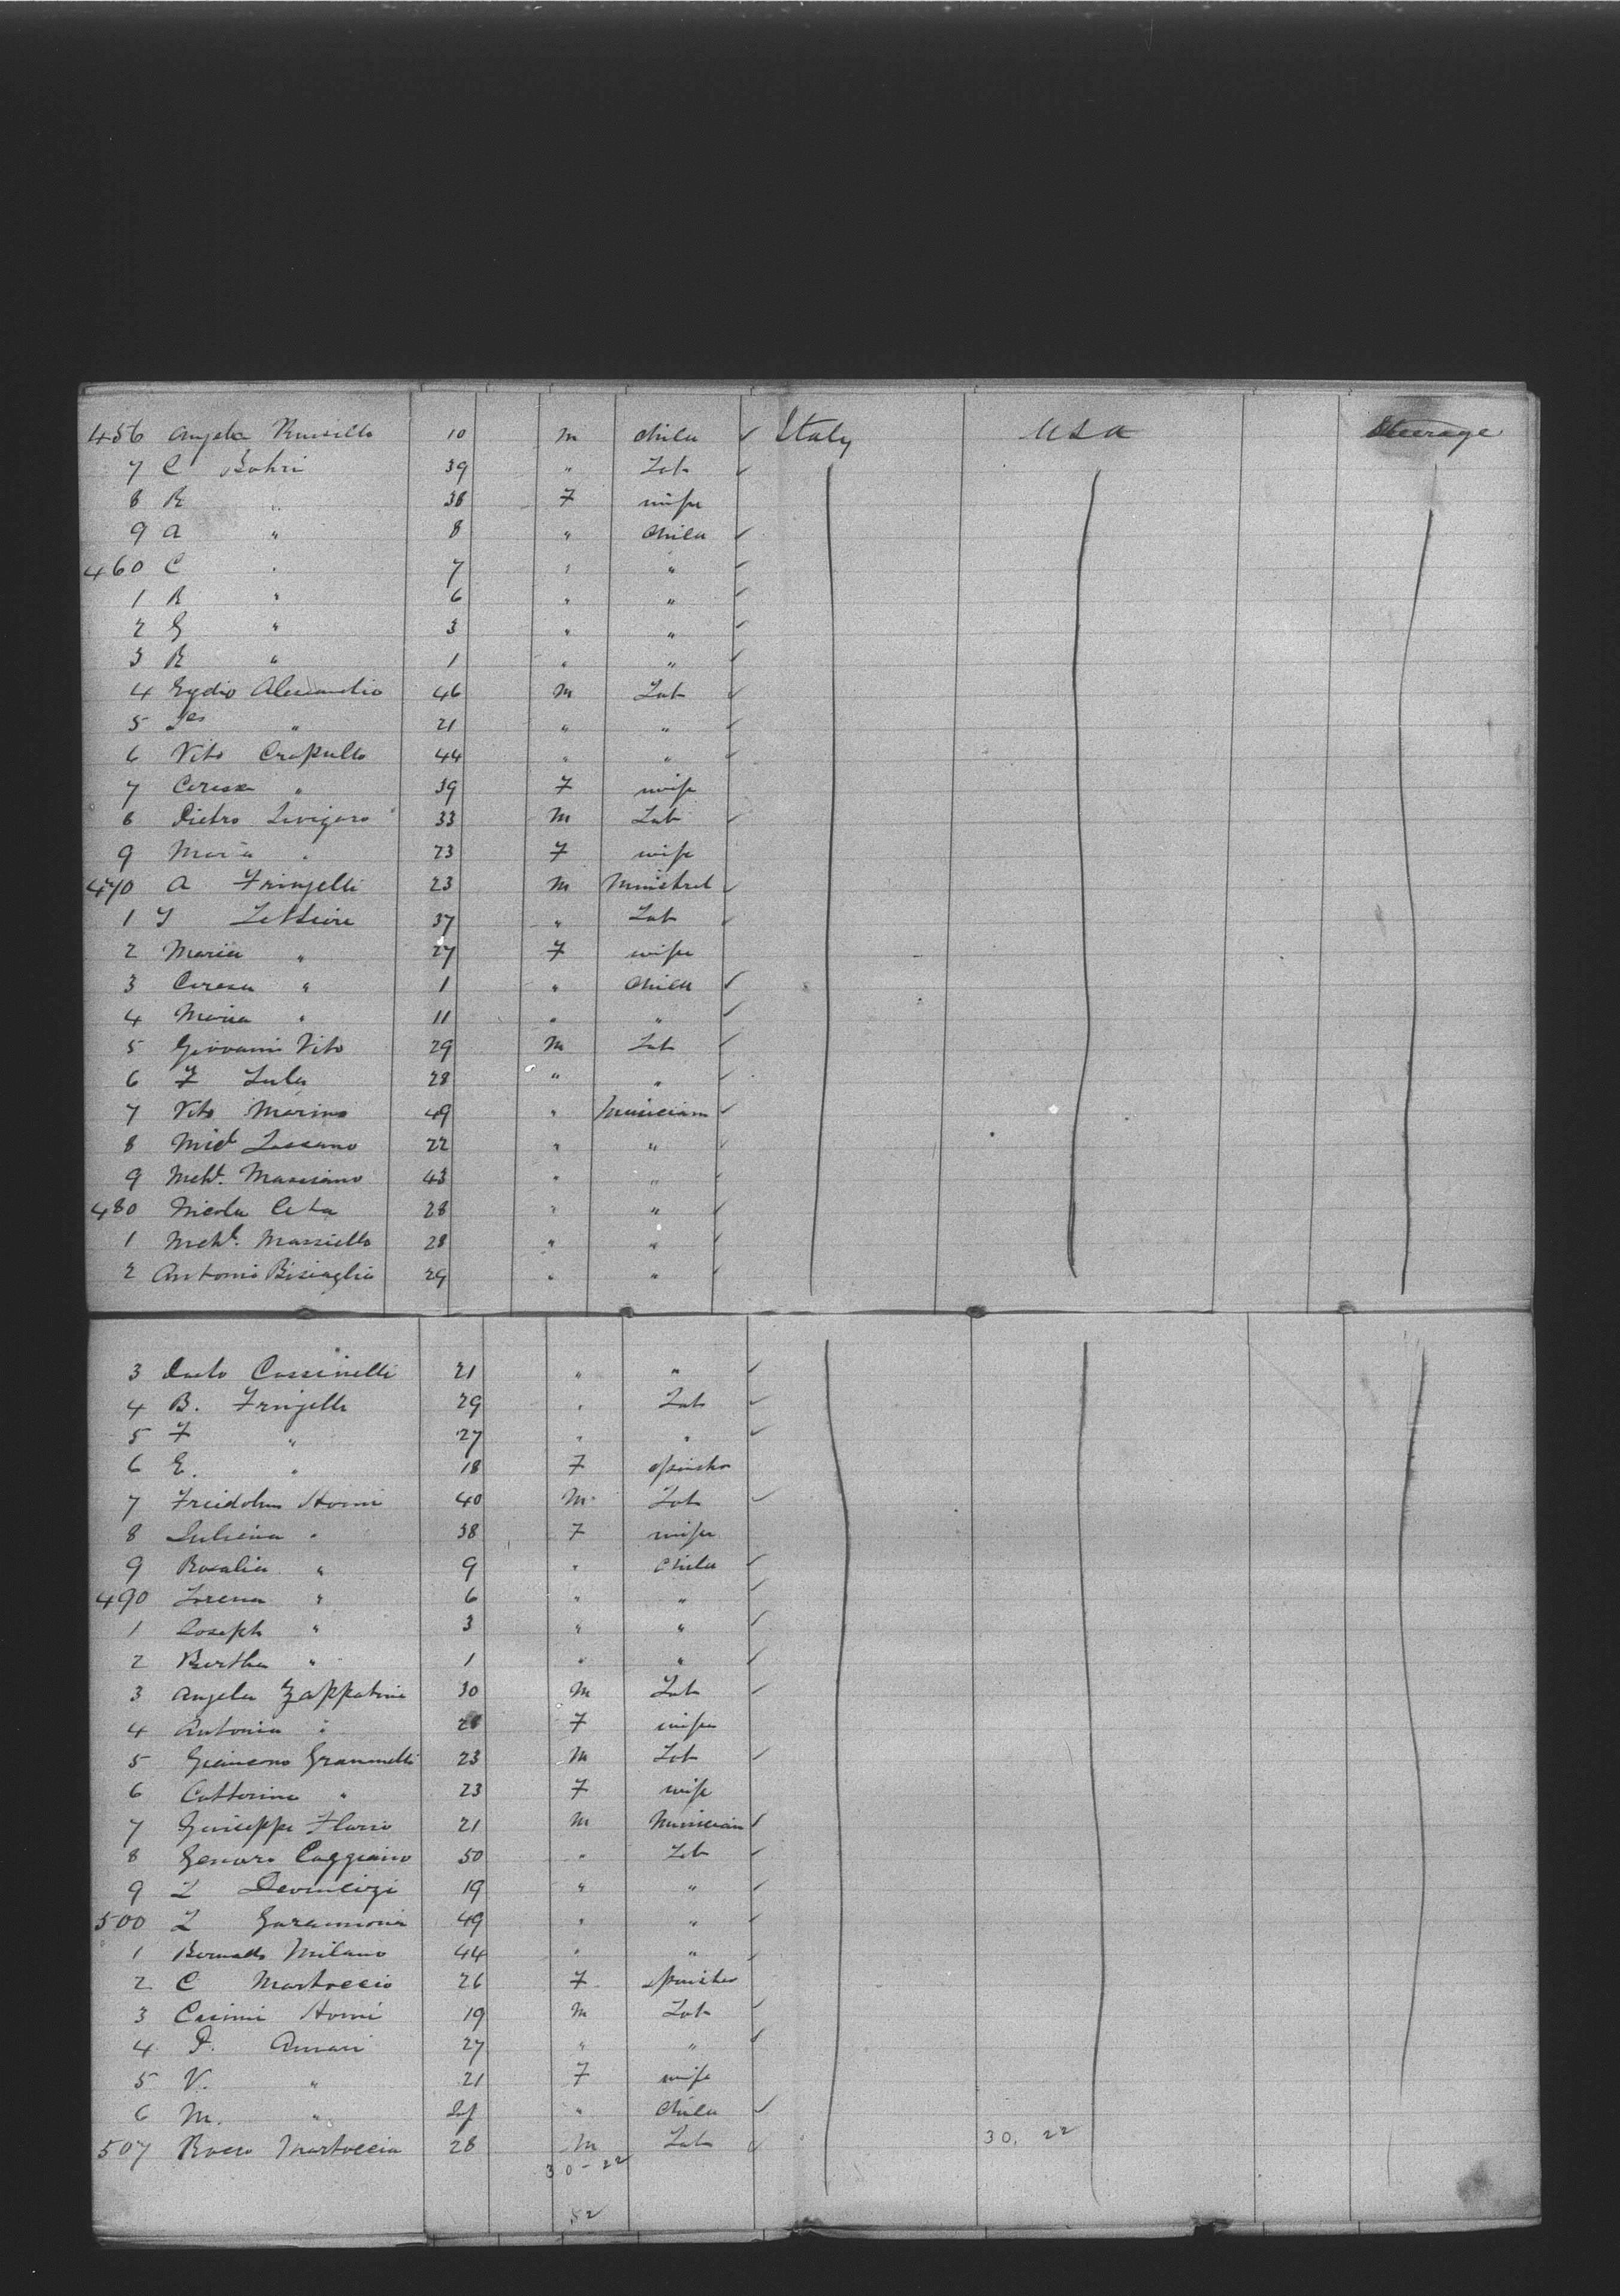 456 Angela Russillo 10 m child ✓ Italy USA Steerage
7 C Bohri 39 " Lab ✓
8 R " 38 F wife
9 A " 8 " child ✓
460 C " 7 " " ✓
1 R " 6 " " ✓
2 G " 3 " " ✓
3 R " 1 " " ✓
4 Egdio Alessandio 46 m Lab ✓
5 " 21 " " ✓
6 Vito Crapullo 44 " " ✓
7 Ceresa " 39 F wife
8 Pietro Livigero 33 m Lab ✓
9 Maria " 23 F wife
470 A Fringelli 23 m Minstrel ✓
1 Y Lettiere 37 " Lab ✓
2 Maria " 27 F wife
3 Ceresa " 1 " child ✓
4 Maria " 11 " " ✓
5 Giovanni Vito 29 m Lab ✓
6 F Lula 28 " " ✓
7 Vito Marino 49 " Musician ✓
8 Micl Lassano 22 " " ✓
9 Mchl. Masciano 43 " " ✓
480 Nicola Ceta 28 " " ✓
1 Mchl. Massiello 28 " " ✓
2 Antonio Bisiaglio 29 " " ✓
3 Paolo Cassinelli 21 " " ✓
4 B. Fringelli 29 " Lab ✓
5 F " 27 " " ✓
6 E. " 18 F spinster
7 Freidolin Homi 40 m Lab ✓
8 Juliena " 38 F wife
9 Rosalia " 9 " child ✓
490 Lorena " 6 " " ✓
1 Joseph " 3 " " ✓
2 Bertha " 1 " " ✓
3 Angela Zappatini 30 m Lab ✓
4 Antonia " F wife
5 Giancono Grannelli 23 m Lab ✓
6 Catterina " 23 F wife
7 Guiseppe Florio 21 m Musician ✓
8 Genaro Caggiano 50 " Lab ✓
9 L Devincizi 19 " " ✓
500 L Garamonia 49 " " ✓
1 Bernado Milano 44 " " ✓
2 C Martoccio 26 F spinster
3 Casimi Homi 19 m Lab ✓
4 P. Annari 27 " " ✓
5 V. " 21 F wife
6 M. " Inf " child ✓
507 Rocco Martoccia 28 m Lab ✓ 30, 22
30-22
52